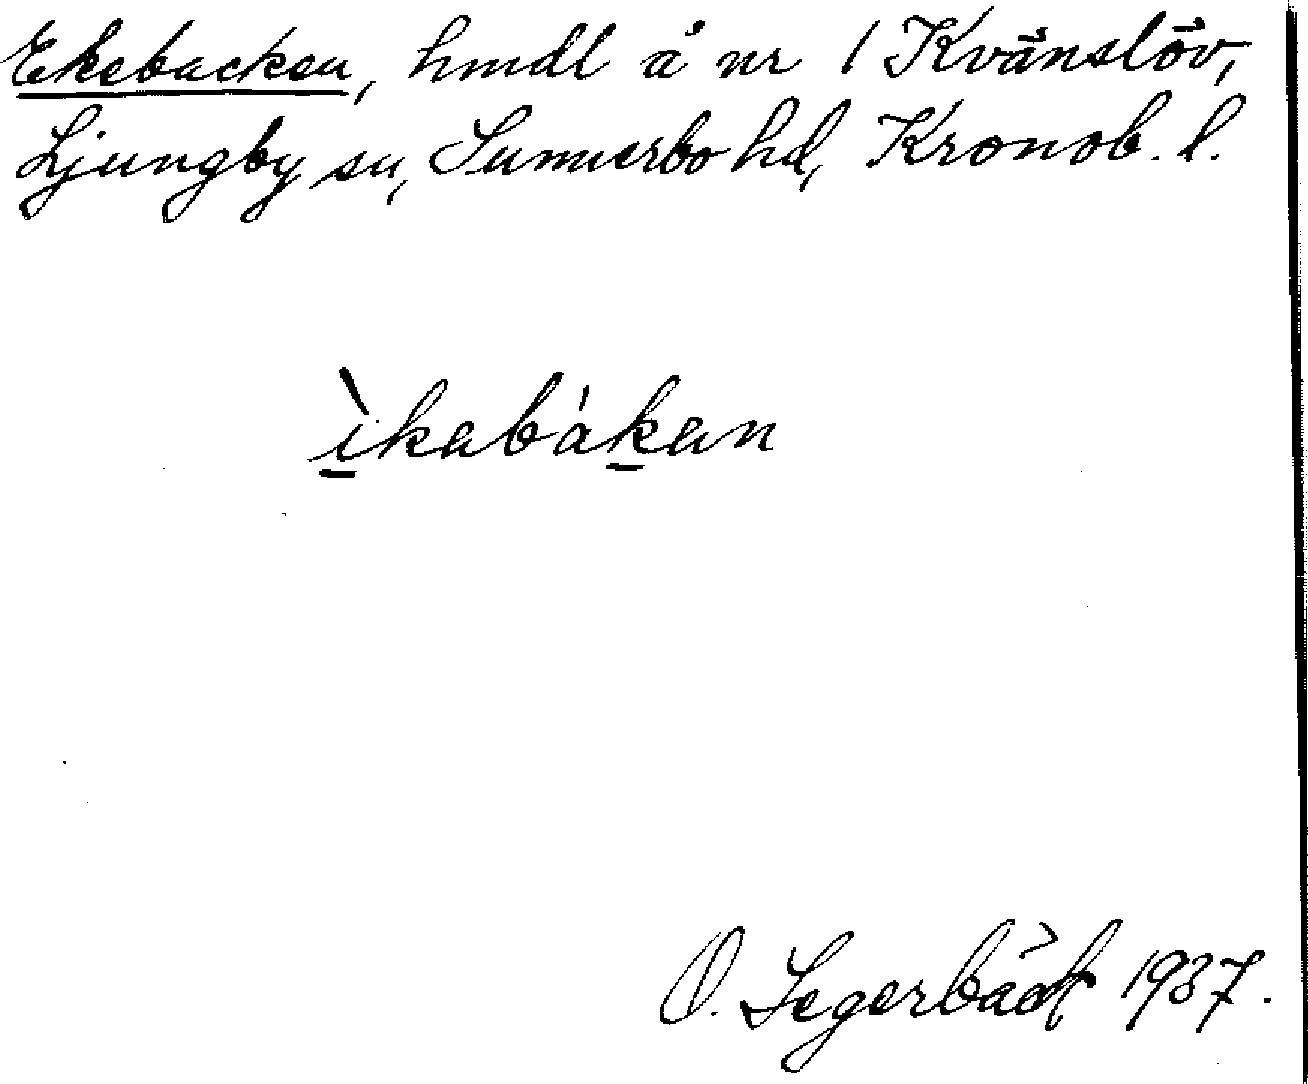 Ekebacken, hmdl å nr 1 Kvänslöv,
Ljungby sn, Sunnerbo hd, Kronob. l.
ìkabákan
O. Segerbäck 1937.